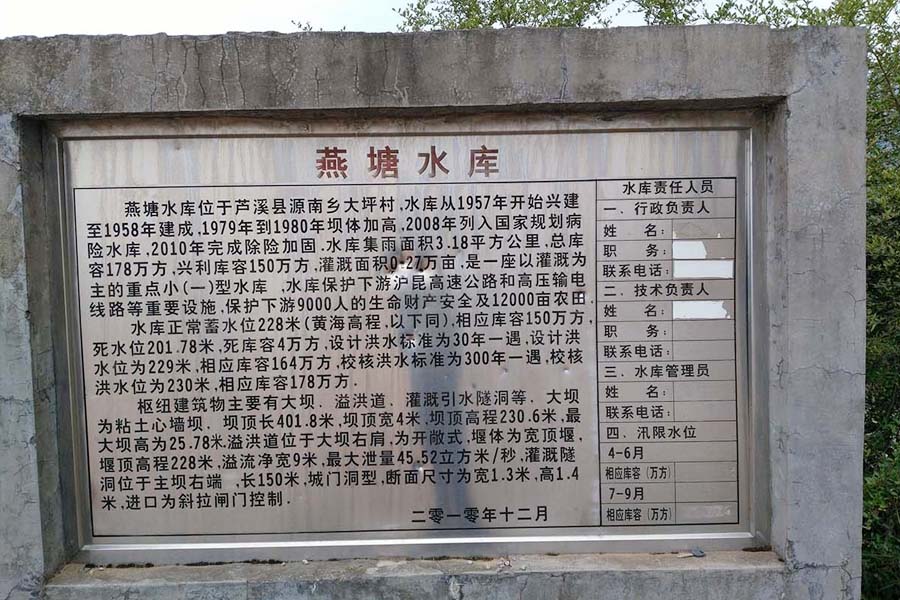 燕塘水库
燕塘水库位于芦溪县源南乡大坪村,水库从1957年开始兴建
至1958年建成,1979年到1980年坝体加高,2008年列入国家规划病
险水库,2010年完成除险加固.水库集雨面积3.18平方公里,总库
容178万方,兴利库容150万方,灌溉面积0.27万亩.是一座以灌溉为
主的重点小(一)型水库 .水库保护下游沪昆高速公路和高压输电
线路等重要设施,保护下游9000人的生命财产安全及12000亩农田.
水库正常蓄水位228米(黄海高程,以下同),相应库容150万方,
死水位201.78米,死库容4万方,设计洪水标准为30年一遇,设计洪
水位为229米,相应库容164万方,校核洪水标准为300年一遇,校核
洪水位为230米,相应库容178万方.
枢纽建筑物主要有大坝.溢洪道.灌溉引水隧洞等.大坝
为粘土心墙坝.坝顶长401.8米,坝顶宽4米.坝顶高程230.6米,最
大坝高为25.78米溢洪道位于大坝右肩,为开敞式,堰体为宽顶堰,
堰顶高程228米,溢流净宽9米,最大泄量45.52立方米/秒,灌溉隧
洞位于主坝右端 .长150米,城门洞型,断面尺寸为宽1.3米,高1.4
米,进口为斜拉闸门控制.
二零一零年十二月
水库责任人员
一、行政负责人
姓 名:
职 务:
联系电话:
二、技术负责人
姓 名:
职 务:
联系电话:
三、水库管理员
姓 名:
联系电话:
四、汛限水位
4-6月
相应库容(万方)
7-9月
相应库容(万方)